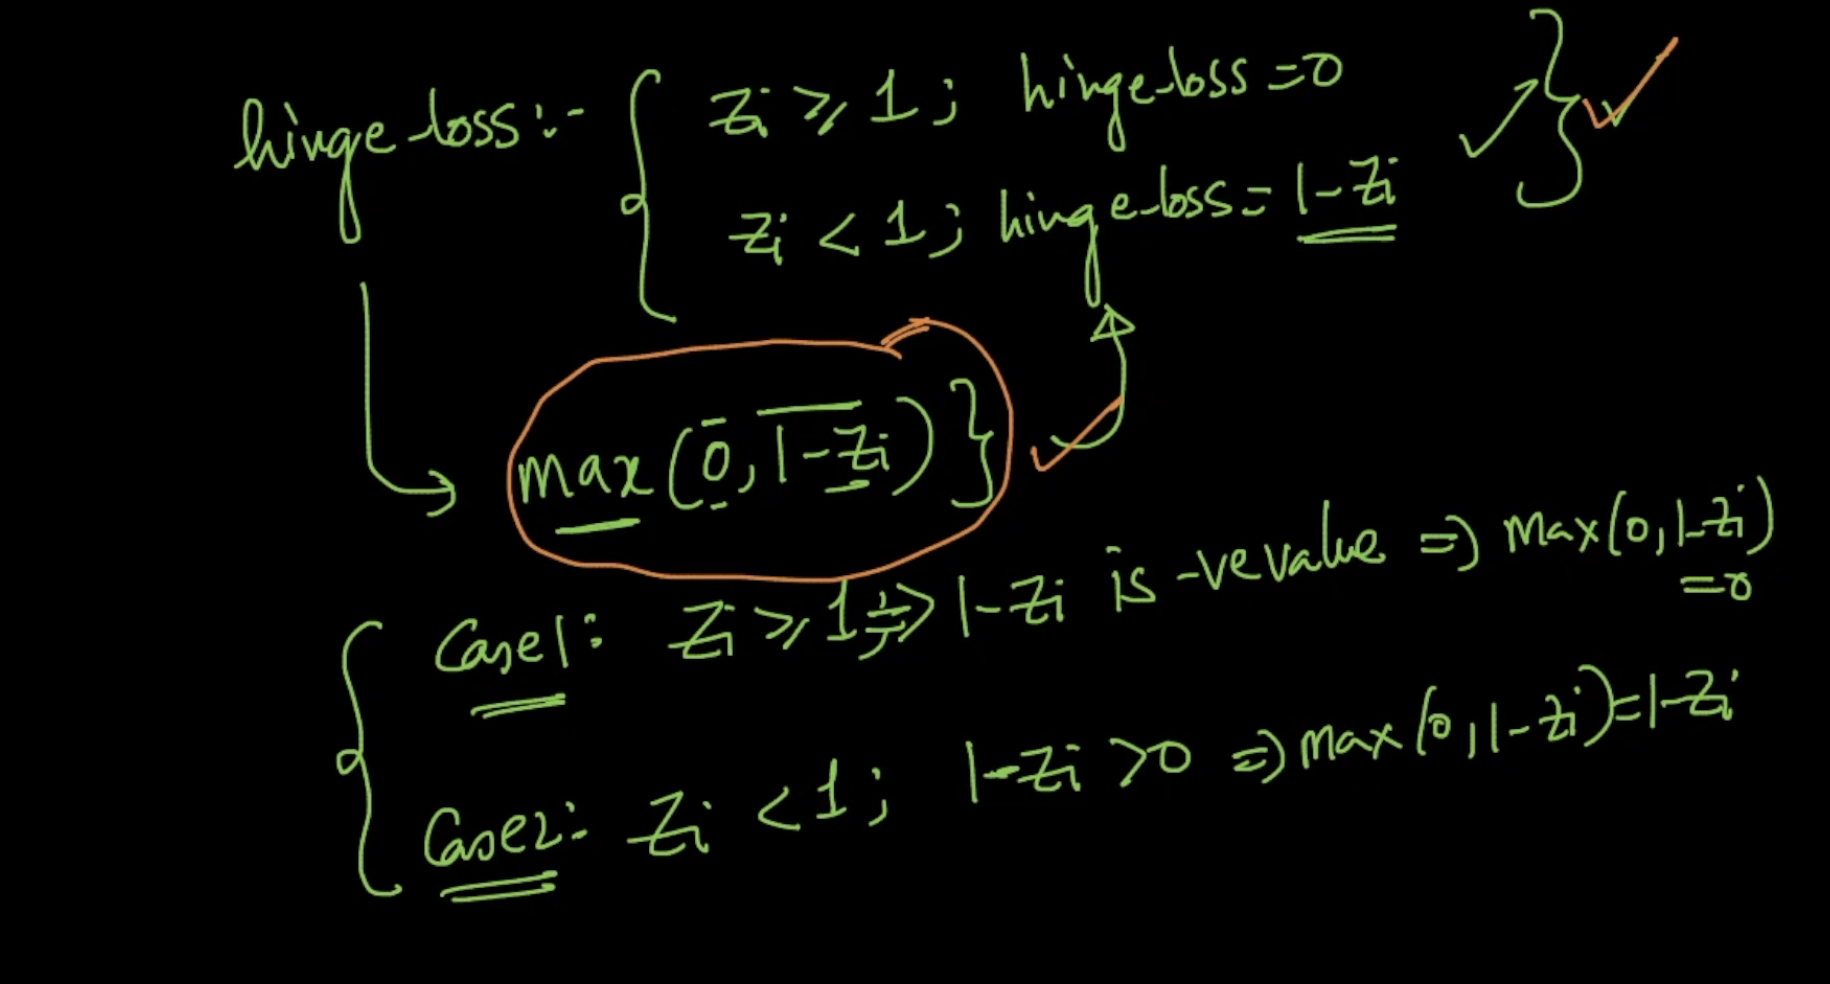 hinge-loss:- { zi ≥ 1; hinge-loss = 0
zi < 1; hinge-loss = 1-zi }
max(0, 1-zi) }
Case1: zi ≥ 1; ⇒ 1-zi is -ve value ⇒ max(0, 1-zi)
=0
Case2: zi < 1; 1-zi > 0 ⇒ max(0, 1-zi) = 1-zi